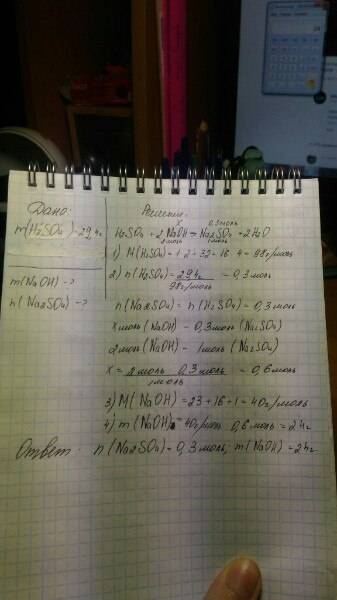 Дано:
m(H2SO4)=29,4г
m(NaOH) -?
n(Na2SO4) -?
Решение:
x 0,3моль
H2SO4 + 2NaOH = Na2SO4 + 2H2O
2моль 1моль
1) M(H2SO4) = 1·2 + 32 + 16·4 = 98г/моль
2) n(H2SO4) = 29,4г / 98г/моль = 0,3моль
n(Na2SO4) = n(H2SO4) = 0,3моль
x моль (NaOH) - 0,3моль (Na2SO4)
2моль (NaOH) - 1моль (Na2SO4)
x = 2моль · 0,3моль / 1моль = 0,6моль
3) M(NaOH) = 23 + 16 + 1 = 40г/моль
4) m(NaOH) = 40г/моль · 0,6моль = 24г
Ответ: n(Na2SO4) = 0,3моль; m(NaOH) = 24г